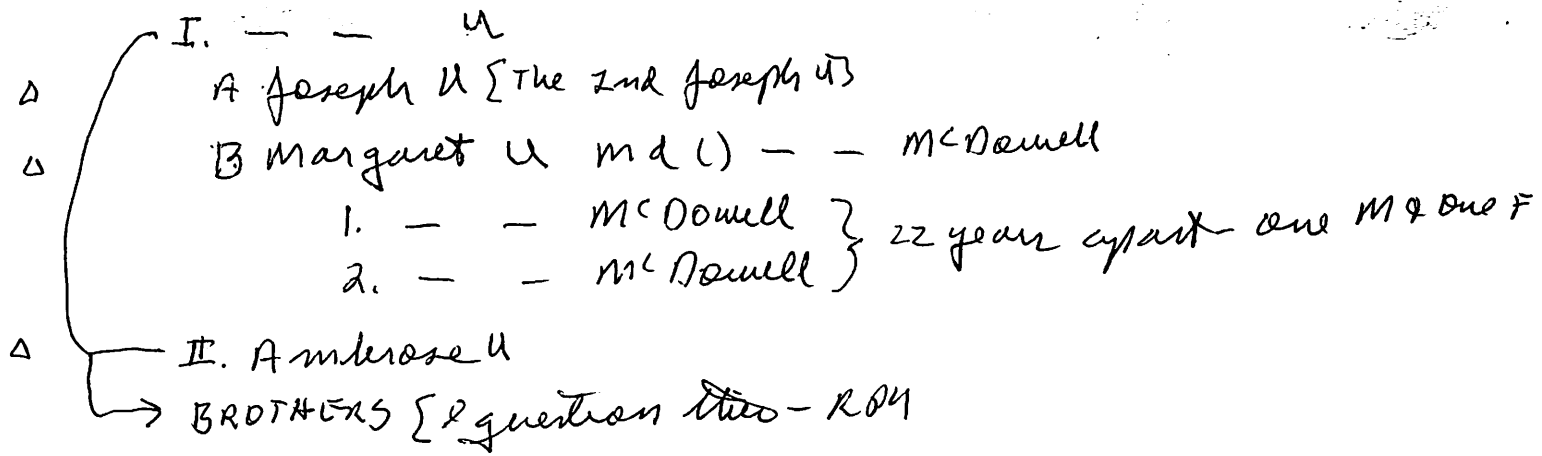 I. — — U
Δ A Joseph U [The 2nd Joseph U]
Δ B Margaret U md () — — McDowell
1. — — McDowell } 22 years apart one M & one F
2. — — McDowell }
Δ II. Ambrose U
→ BROTHERS [I question this - RDY